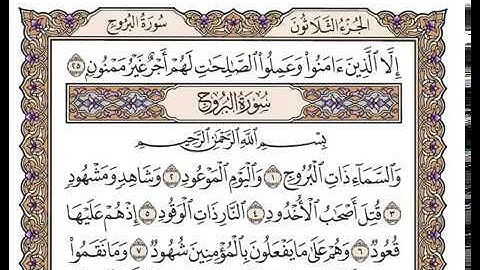 سُورَةُ البُرُوجِ الجُزْءُ الثَّلَاثُونَ
إِلَّا ٱلَّذِينَ ءَامَنُوا۟ وَعَمِلُوا۟ ٱلصَّـٰلِحَـٰتِ لَهُمْ أَجْرٌ غَيْرُ مَمْنُونٍۭ ٢٥
سُورَةُ البُرُوجِ
بِسْمِ ٱللَّهِ ٱلرَّحْمَـٰنِ ٱلرَّحِيمِ
وَٱلسَّمَآءِ ذَاتِ ٱلْبُرُوجِ ١ وَٱلْيَوْمِ ٱلْمَوْعُودِ ٢ وَشَاهِدٍ وَمَشْهُودٍ
٣ قُتِلَ أَصْحَـٰبُ ٱلْأُخْدُودِ ٤ ٱلنَّارِ ذَاتِ ٱلْوَقُودِ ٥ إِذْ هُمْ عَلَيْهَا
قُعُودٌ ٦ وَهُمْ عَلَىٰ مَا يَفْعَلُونَ بِٱلْمُؤْمِنِينَ شُهُودٌ ٧ وَمَا نَقَمُوا۟